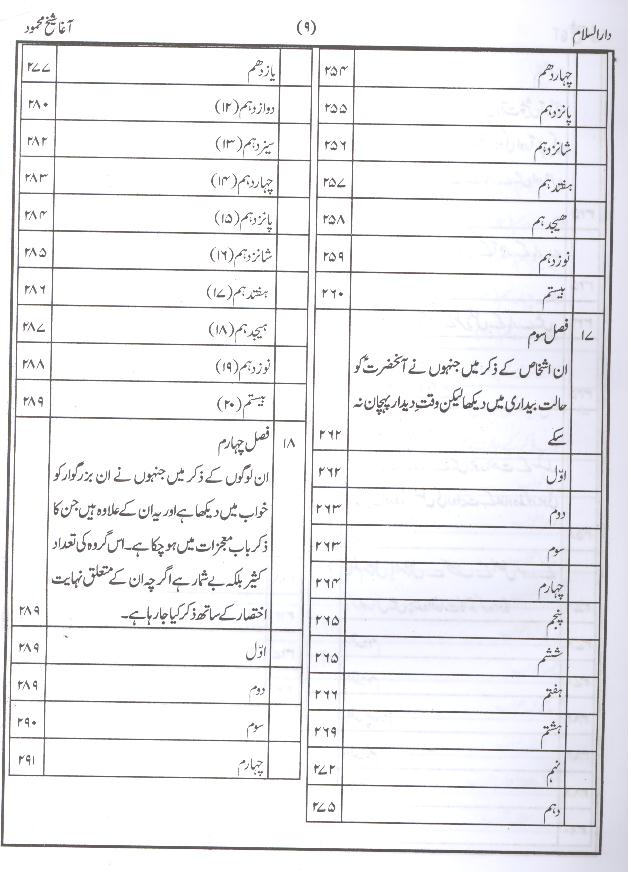 دارالسلام (۹) آغا شیخ محمود
چہاردھم ۲۵۴
پانزدہم ۲۵۵
شانزدہم ۲۵۶
ہفتدہم ۲۵۷
ھیجدہم ۲۵۸
نوزدہم ۲۵۹
بیستم ۲۶۰
۱۷ فصل سوم
ان اشخاص کے ذکر میں جنہوں نے آنحضرتؑ کو
حالت بیداری میں دیکھا لیکن وقتِ دیدار پہچان نہ
سکے ۲۶۲
اوّل ۲۶۲
دوم ۲۶۳
سوم ۲۶۳
چہارم ۲۶۴
پنجم ۲۶۵
ششم ۲۶۵
ہفتم ۲۶۶
ہشتم ۲۶۹
نہم ۲۷۲
دہم ۲۷۵
یازدھم ۲۷۷
دوازدہم (۱۲) ۲۸۰
سیزدہم (۱۳) ۲۸۲
چہاردہم (۱۴) ۲۸۳
پانزدہم (۱۵) ۲۸۴
شانزدہم (۱۶) ۲۸۵
ہفتدہم (۱۷) ۲۸۶
ہیجدہم (۱۸) ۲۸۷
نوزدہم (۱۹) ۲۸۸
بیستم (۲۰) ۲۸۹
۱۸ فصل چہارم
ان لوگوں کے ذکر میں جنہوں نے ان بزرگوار کو
خواب میں دیکھا ہے اور یہ ان کے علاوہ ہیں جن کا
ذکر باب معجزات میں ہو چکا ہے۔ اس گروہ کی تعداد
کثیر بلکہ بے شمار ہے اگرچہ ان کے متعلق نہایت
اختصار کے ساتھ ذکر کیا جا رہا ہے۔ ۲۸۹
اوّل ۲۸۹
دوم ۲۸۹
سوم ۲۹۰
چہارم ۲۹۱